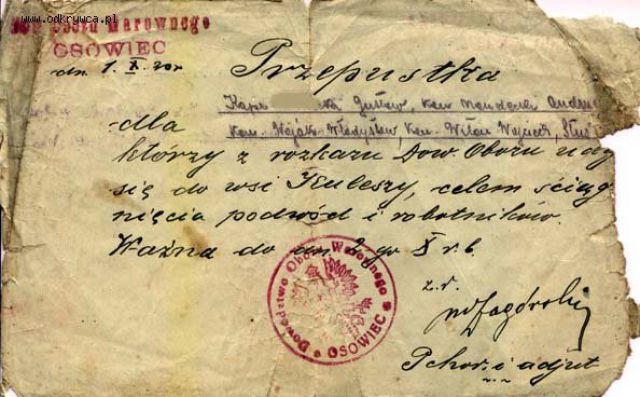 www.odkrywca.pl
Obozu Warownego
OSOWIEC
dn. 1. X. 20r
Przepustka
Kapr. Gustaw, Kan. Andrze
dla Kan. Wójcik Władysław, Kan. Witan Wojciech,
którzy z rozkazu Dow. Obozu udają
się do wsi Kuleszy, celem ściąg
nięcia podwód i robotników.
Ważna do dn. 2-go X r.b.
Dowództwo Obozu Warownego
OSOWIEC
z.r.
Zagórski
Pchor. i adjut